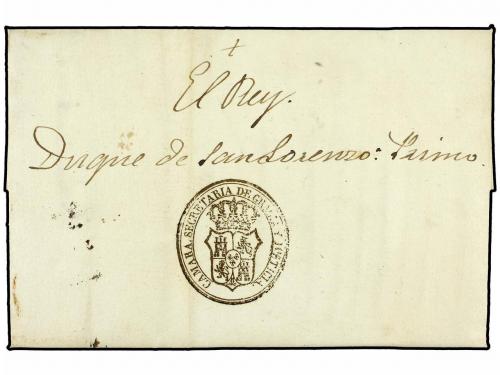 +
El Rey.
Duque de San Lorenzo: Primo.
CAMARA. SECRETARIA DE GRACIA Y JUSTICIA.